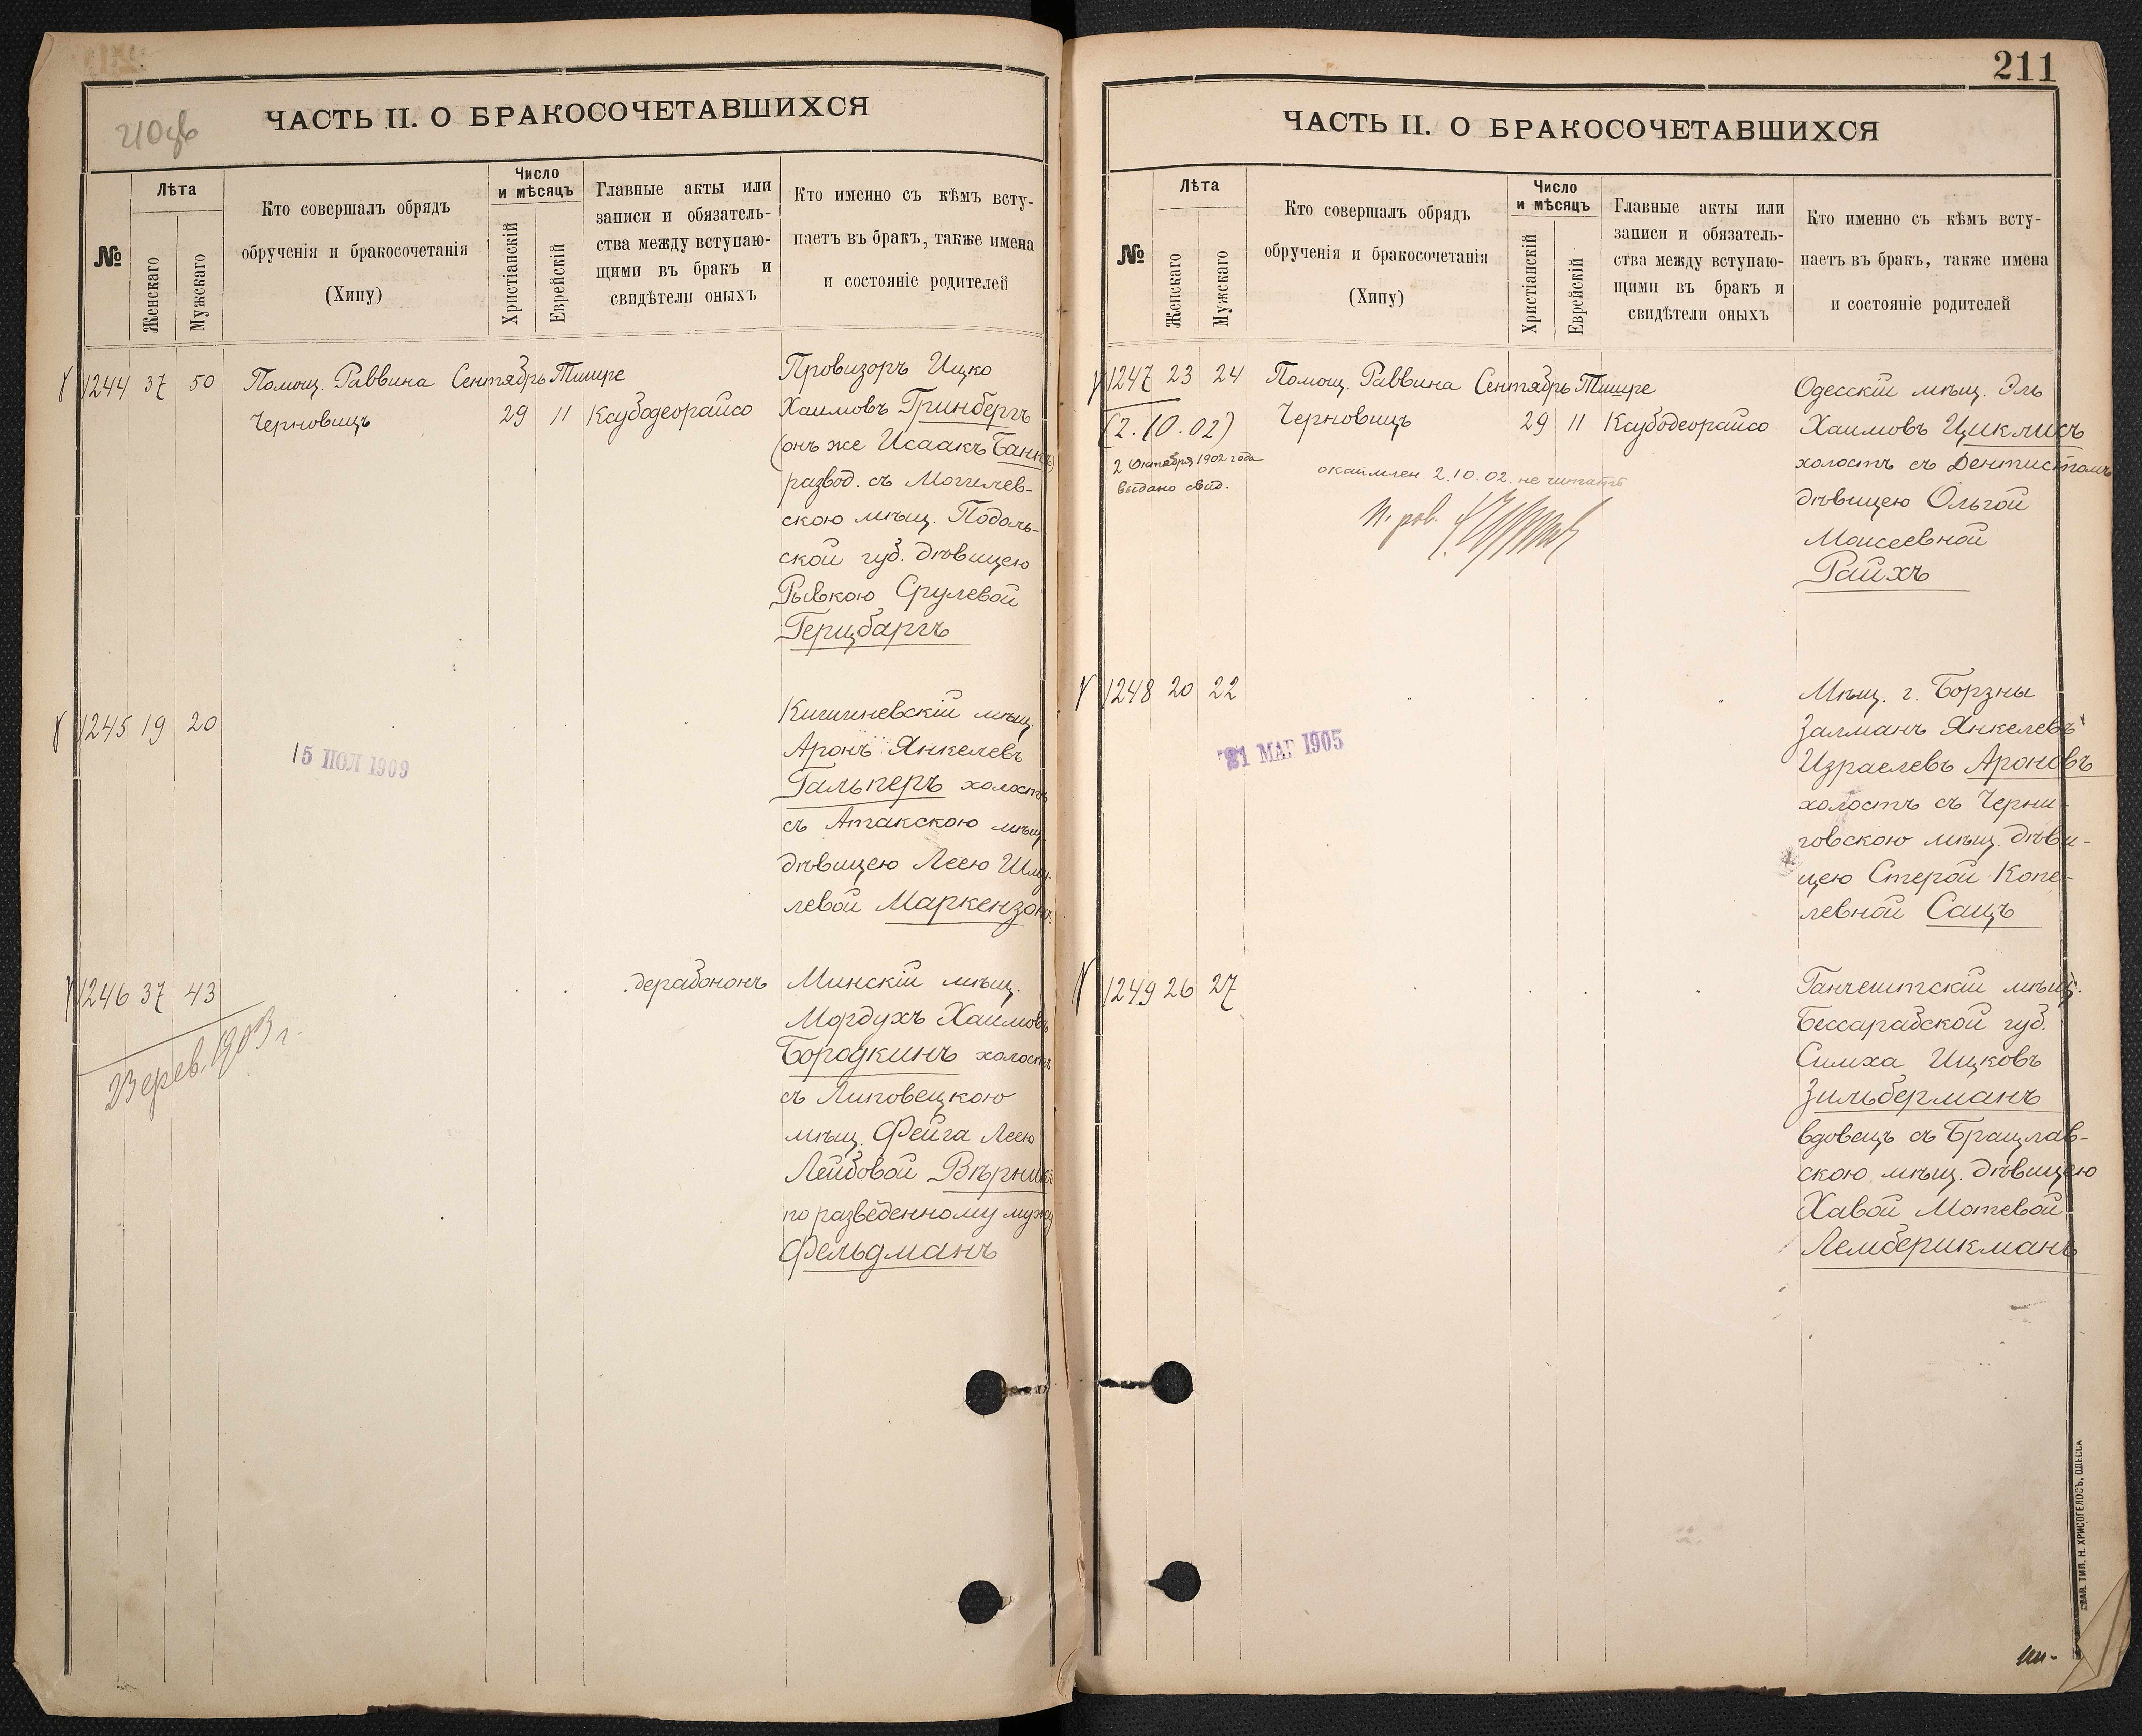 210 об
ЧАСТЬ II. О БРАКОСОЧЕТАВШИХСЯ
№
Лѣта
Женскаго
Мужскаго
Кто совершалъ обрядъ
обрученія и бракосочетанія
(Хипу)
Число
и мѣсяцъ
Христіанскій
Еврейскій
Главные акты или
записи и обязатель-
ства между вступаю-
щими въ бракъ и
свидѣтели оныхъ
Кто именно съ кѣмъ всту-
паетъ въ бракъ, также имена
и состояніе родителей
1244 37 50 Помощ. Раввина Сентябрь Тишре
Черновицъ 29 11 Ксубодеорайсо
Провизоръ Ицко
Хаимовъ Гринбергъ
(онъ же Исаакъ Банкъ)
развод. съ Могилев-
скою мѣщ. Подоль-
ской губ. дѣвицею
Рывкою Срулевой
Герцбаргъ
1245 19 20
15 ПОЛ 1909
Кишиневскій мѣщ.
Аронъ Янкелевъ
Гальперъ холостъ
съ Атакскою мѣщ.
дѣвицею Леею Шму-
левой Маркензонъ
1246 37 43 дерабононъ
1903 г.
Минскій мѣщ.
Мордухъ Хаимовъ
Бородкинъ холостъ
съ Липовецкою
мѣщ. Фейга Леею
Лейбовой Вѣрникъ
по разведенному мужу
Фельдманъ
211
ЧАСТЬ II. О БРАКОСОЧЕТАВШИХСЯ
№
Лѣта
Женскаго
Мужскаго
Кто совершалъ обрядъ
обрученія и бракосочетанія
(Хипу)
Число
и мѣсяцъ
Христіанскій
Еврейскій
Главные акты или
записи и обязатель-
ства между вступаю-
щими въ бракъ и
свидѣтели оныхъ
Кто именно съ кѣмъ всту-
паетъ въ бракъ, также имена
и состояніе родителей
1247 23 24 Помощ. Раввина Сентябрь Тишре
(2.10.02) Черновицъ 29 11 Ксубодеорайсо
2 Октября 1902 года
выдано свид.
2.10.02. не читать
Одесскій мѣщ. Эль
Хаимовъ Циклисъ
холостъ съ Дентистомъ
дѣвицею Ольгой
Моисеевной
Райхъ
1248 20 22
21 МАР 1905
Мѣщ. г. Борзны
Залманъ Янкелевъ
Израелевъ Ароновъ
холостъ съ Черни-
говскою мѣщ. дѣви-
цею Стерой Копе-
левной Сацъ
1249 26 27
Ганчештскій мѣщ.
Бессарабской губ.
Симха Ицковъ
Зильберманъ
вдовецъ съ Брацлав-
скою мѣщ. дѣвицею
Хавой Мотевой
Лемберикманъ
СЛАВ. ТИП. Н. ХРИСОГЕЛОСЪ, ОДЕССА